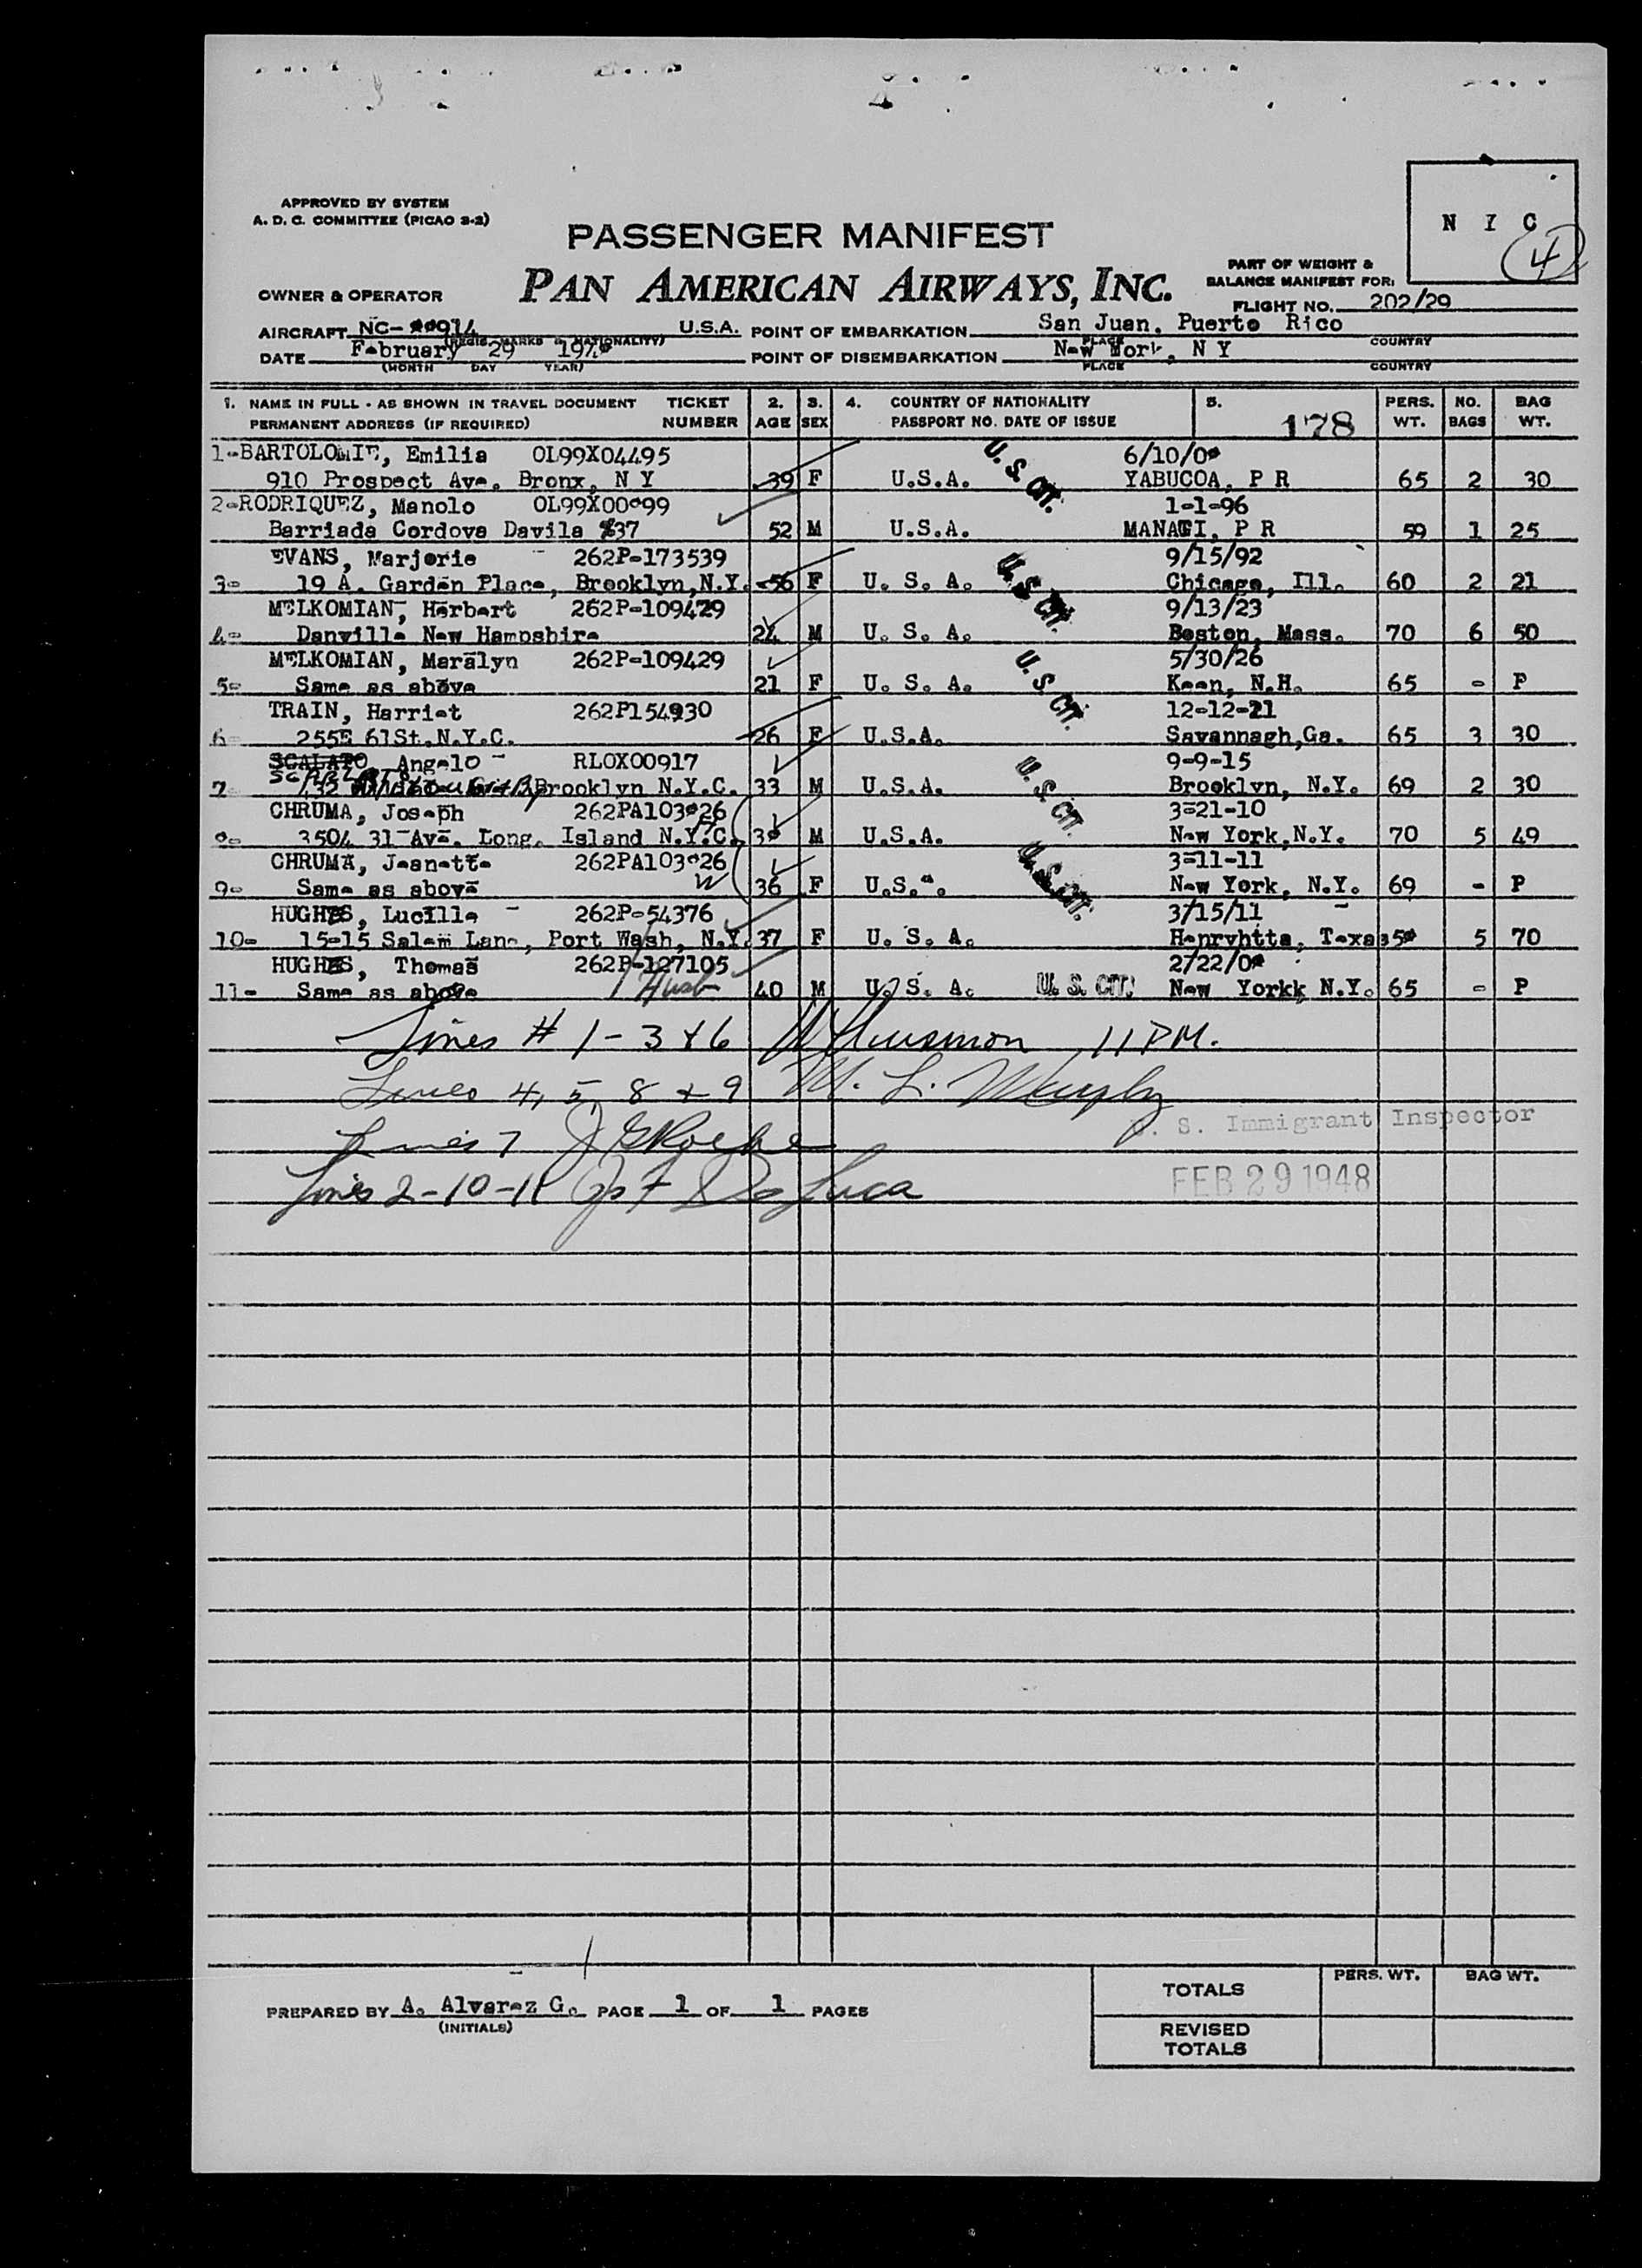 APPROVED BY SYSTEM
A. D. C. COMMITTEE (PICAO 3-2)
N I C
4
PASSENGER MANIFEST
PAN AMERICAN AIRWAYS, INC.
PART OF WEIGHT &
BALANCE MANIFEST FOR:
OWNER & OPERATOR
FLIGHT NO. 202/29
AIRCRAFT NC- U.S.A. POINT OF EMBARKATION San Juan, Puerto Rico
(REGIS. MARKS & NATIONALITY) PLACE COUNTRY
DATE February 29 POINT OF DISEMBARKATION New York, N Y
(MONTH DAY YEAR) PLACE COUNTRY
1. NAME IN FULL - AS SHOWN IN TRAVEL DOCUMENT TICKET 2. 3. 4. COUNTRY OF NATIONALITY 5. PERS. NO. BAG
PERMANENT ADDRESS (IF REQUIRED) NUMBER AGE SEX PASSPORT NO. DATE OF ISSUE 178 WT. BAGS WT.
1-BARTOLOMIE, Emilia OL99X04495 U. S. CIT. 6/10/08
910 Prospect Ave. Bronx, N Y 39 F U.S.A. YABUCOA, P R 65 2 30
2-RODRIQUEZ, Manolo OL99X00899 1-1-96
Barriada Cordova Davila 37 52 M U.S.A. MANATI, P R 59 1 25
EVANS, Marjorie 262P-173539 9/15/92
3- 19 A. Garden Place, Brooklyn, N.Y. 56 F U. S. A. U. S. CIT. Chicago, Ill. 60 2 21
MELKOMIAN, Herbert 262P-109429 9/13/23
4- Danville New Hampshire 24 M U. S. A. Boston, Mass. 70 6 50
MELKOMIAN, Maralyn 262P-109429 5/30/26
5- Same as above 21 F U. S. A. U. S. CIT. Keen, N.H. 65 - P
TRAIN, Harriet 262P154930 12-12-21
6- 255E 61St.N.Y.C. 26 F U.S.A. Savannagh,Ga. 65 3 30
SCALATO Angelo RLOX00917 9-9-15
7- Brooklyn N.Y.C. 33 M U.S.A. U. S. CIT. Brooklyn, N.Y. 69 2 30
CHRUMA, Joseph 262PA103826 3-21-10
8- 3504 31 Ave. Long. Island N.Y.C. 38 M U.S.A. New York,N.Y. 70 5 49
CHRUMA, Jeanette 262PA103826 3-11-11
9- Same as above W 36 F U.S.A. U. S. CIT. New York, N.Y. 69 - P
HUGHES, Lucille 262P-54376 3/15/11
10- 15-15 Salem Lane, Port Wash, N.Y. 37 F U. S. A. Henryhtta, Texas 58 5 70
HUGHES, Thomas 262P-127105 2/22/08
11- Same as above Husb 40 M U. S. A. U. S. CIT. New Yorkk N.Y. 65 - P
Lines # 1-3 & 6 11 PM.
Lines 4, 5, 8 & 9 M. L. Murphy
U. S. Immigrant Inspector
Lines 7
Lines 2-10-11 Jos F De Luca
FEB 29 1948
PREPARED BY A. Alvarez G. PAGE 1 OF 1 PAGES
(INITIALS)
PERS. WT. BAG WT.
TOTALS
REVISED
TOTALS